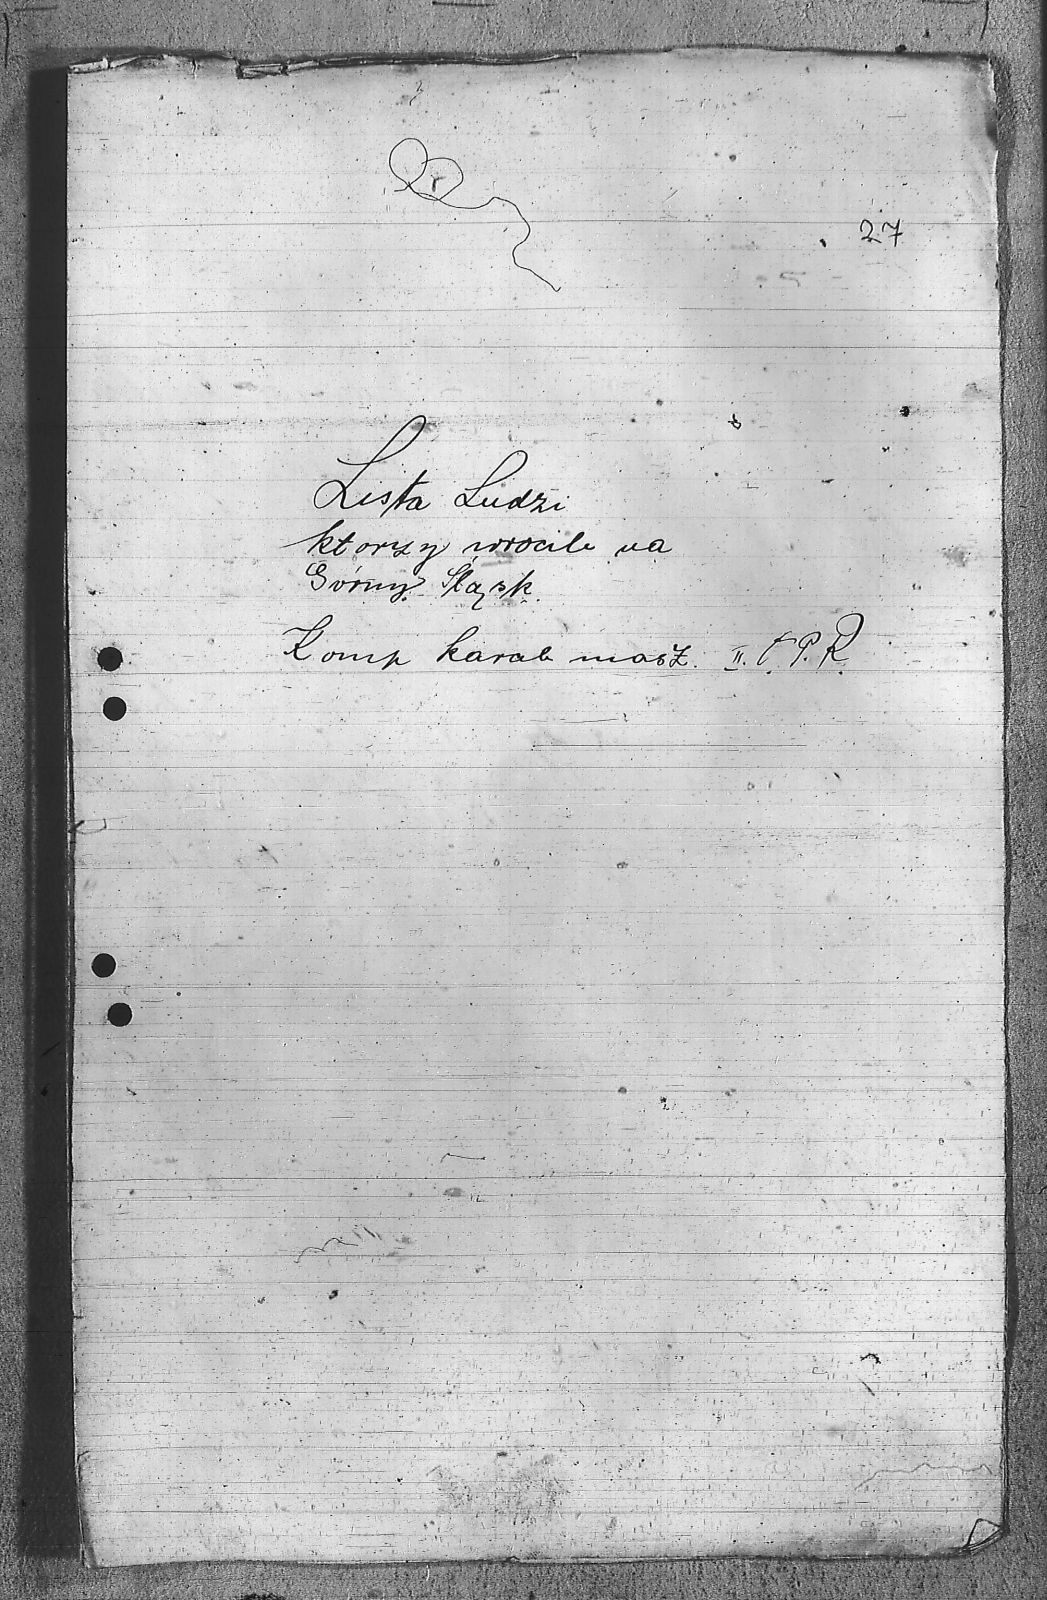 27
Lista Ludzi
ktorzy wrocili na
Górny Śląsk.
Komp karab masz. II. C P. R.